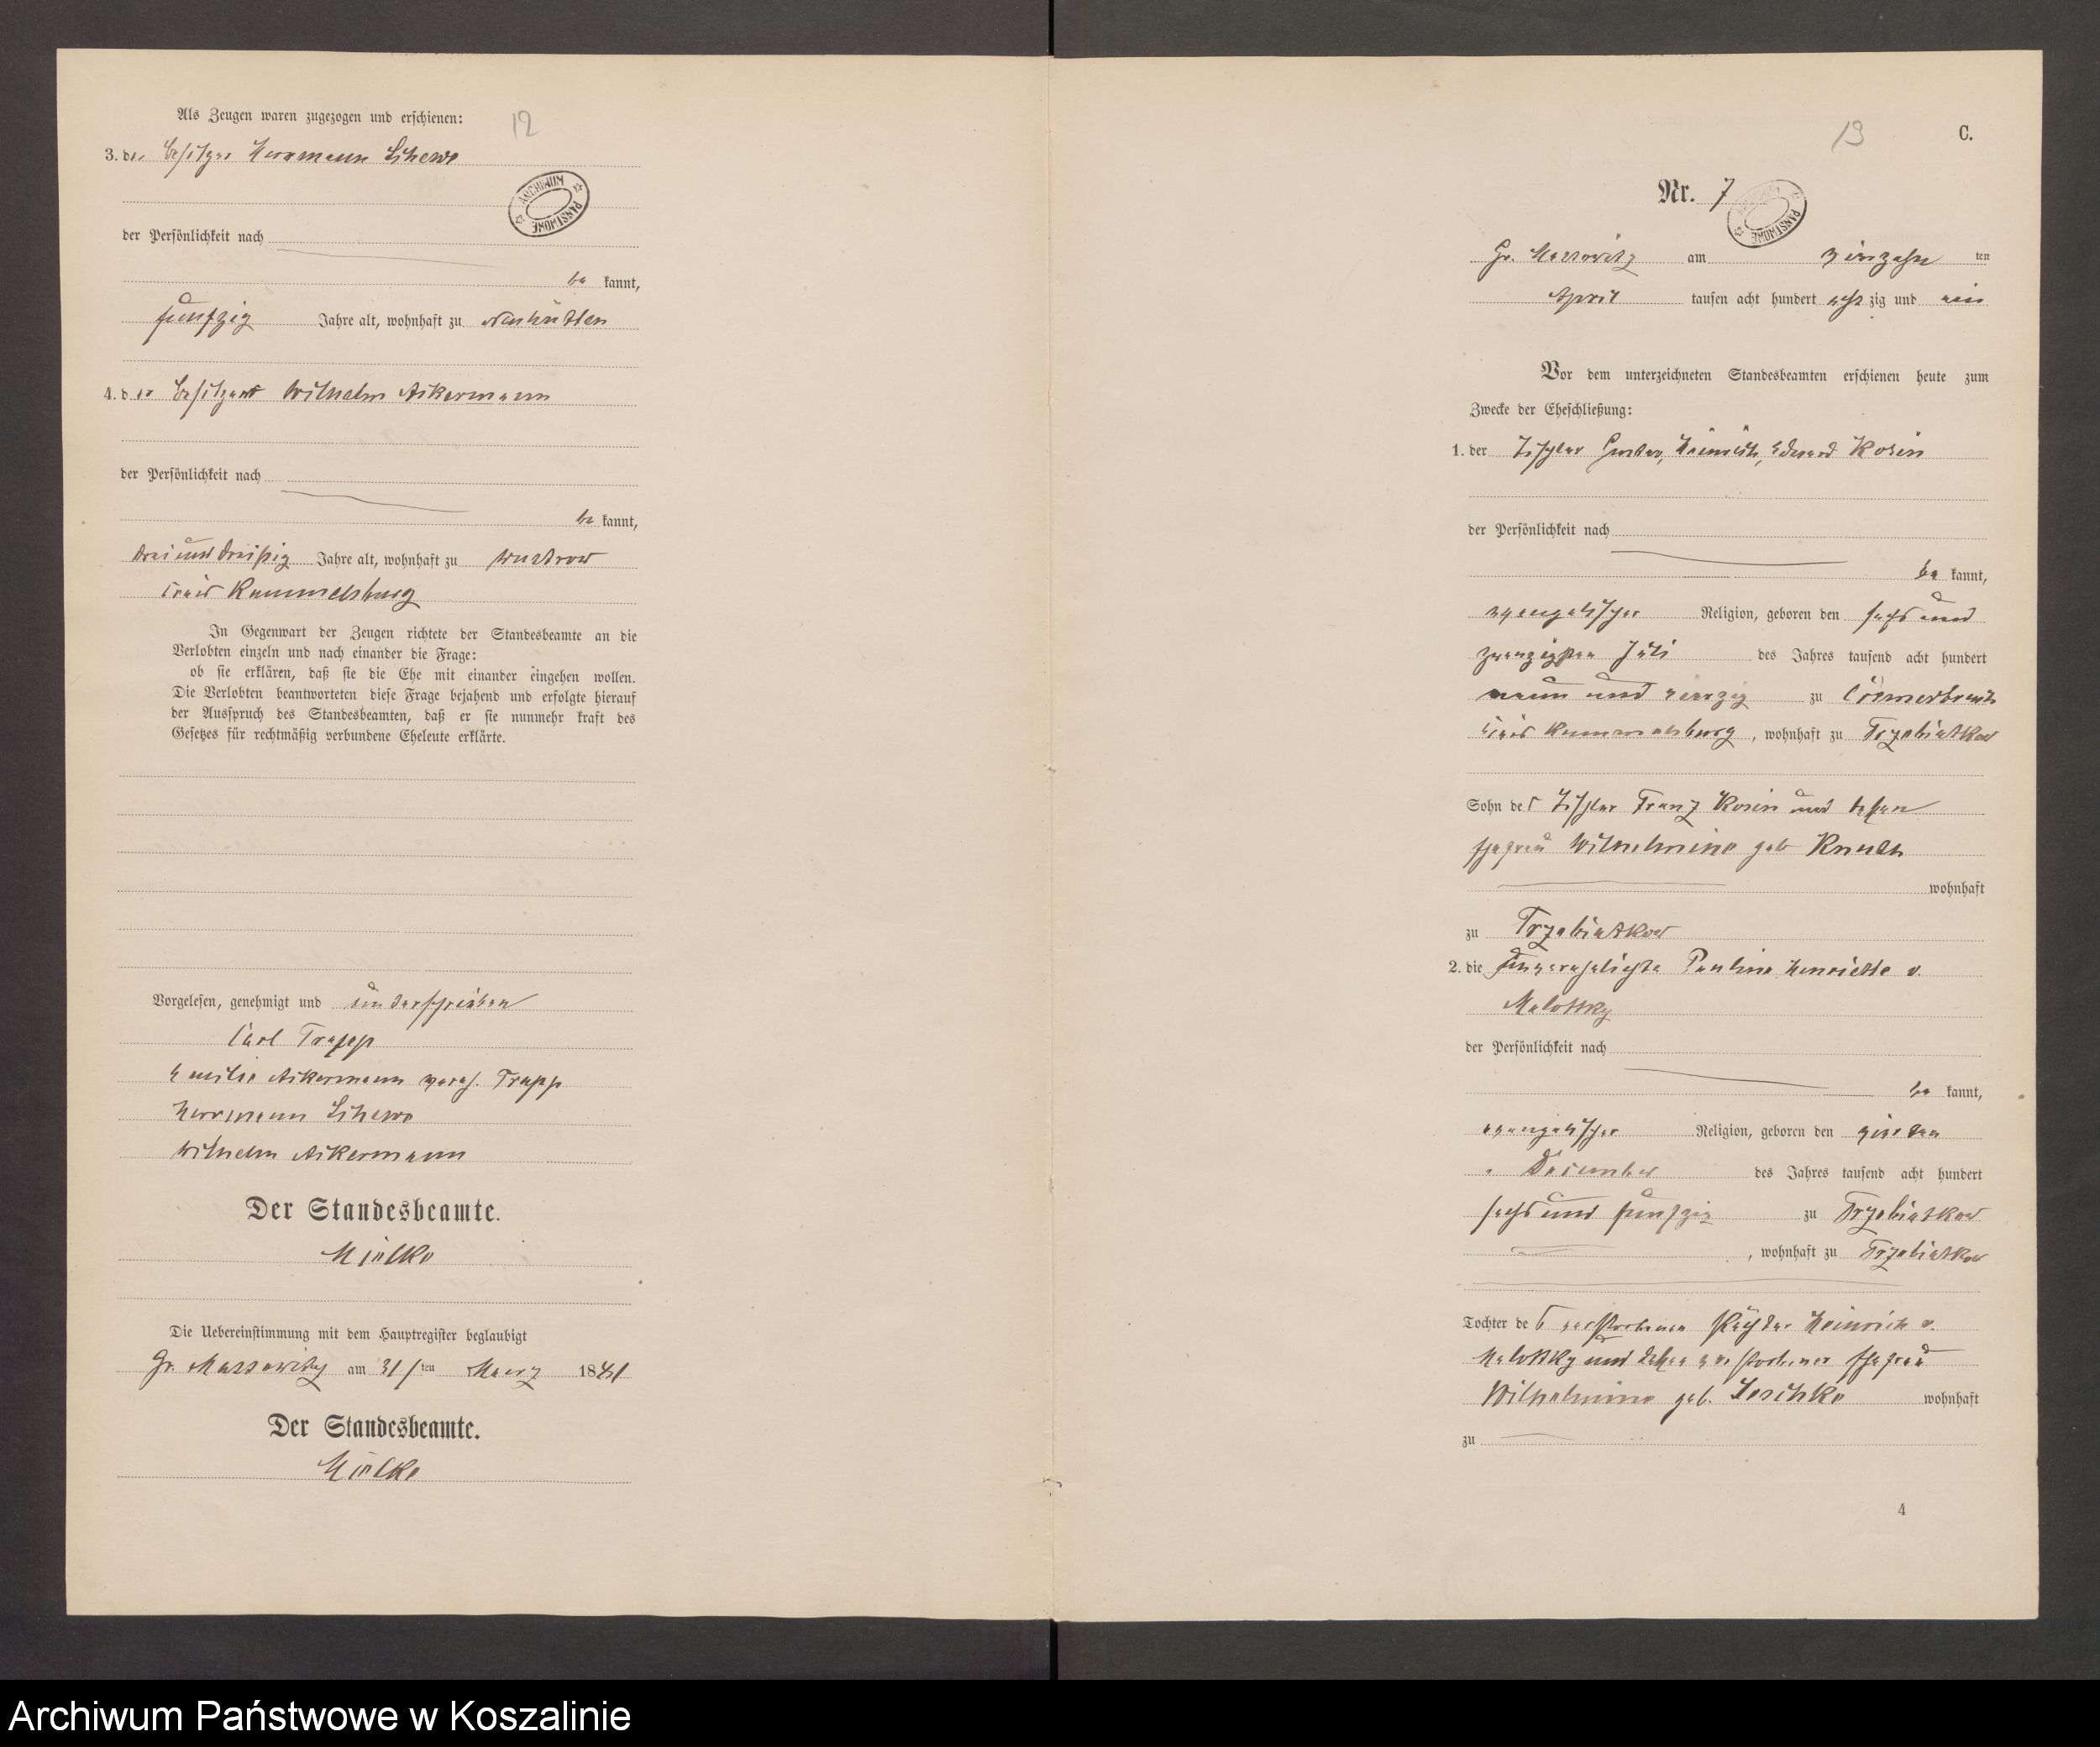 Als Zeugen waren zugezogen und erschienen:
12
3. der Besitzer Herrmann Schewe
ARCHIWUM PAŃSTWOWE
der Persönlichkeit nach
be kannt,
funfzig Jahre alt, wohnhaft zu Neuhütten
4. der Besitzer Wilhelm Ackermann
der Persönlichkeit nach
be kannt,
drei und dreißig Jahre alt, wohnhaft zu Wustrow
Creis Rummelsburg
In Gegenwart der Zeugen richtete der Standesbeamte an die
Verlobten einzeln und nach einander die Frage:
ob sie erklären, daß sie die Ehe mit einander eingehen wollen.
Die Verlobten beantworteten diese Frage bejahend und erfolgte hierauf
der Ausspruch des Standesbeamten, daß er sie nunmehr kraft des
Gesetzes für rechtmäßig verbundene Eheleute erklärte.
Vorgelesen, genehmigt und unterschrieben
Carl Trapp
Emilie Ackermann vereh. Trapp
Herrmann Schewe
Wilhelm Ackermann
Der Standesbeamte.
Mielke
Die Uebereinstimmung mit dem Hauptregister beglaubigt
Gr. Massowitz am 31 ten Maerz 1881
Der Standesbeamte.
Mielke
13
C.
Nr. 7
ARCHIWUM PAŃSTWOWE
Gr. Massowitz am vierzehn ten
April tausen acht hundert acht zig und ein
Vor dem unterzeichneten Standesbeamten erschienen heute zum
Zwecke der Eheschließung:
1. der Tischler Gustav, Heinrich, Eduard Kosin
der Persönlichkeit nach
be kannt,
evangelischer Religion, geboren den sechs und
zwanzigsten Juli des Jahres tausend acht hundert
neun und vierzig zu
Creis Rummelsburg, wohnhaft zu Trzebiatkow
Sohn des Tischler Franz Kosin und dessen
Ehefrau Wilhelmine geb Knuth
wohnhaft
zu Trzebiatkow
2. die unverehelichte Pauline Henriette v.
Malottky
der Persönlichkeit nach
be kannt,
evangelischer Religion, geboren den vierten
December des Jahres tausend acht hundert
sechs und funfzig zu Trzebiatkow
, wohnhaft zu Trzebiatkow
Tochter des verstorbenen Pächter Heinrich v.
Malottky und dessen verstorbener Ehefrau
Wilhelmine geb. Jeschke wohnhaft
zu
4
Archiwum Państwowe w Koszalinie